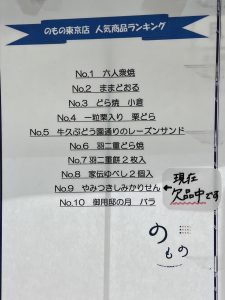 のもの東京店 人気商品ランキング
No.1 六人衆焼
No.2 ままどおる
No.3 どら焼 小倉
No.4 一粒栗入り 栗どら
No.5 牛久ぶどう園通りのレーズンサンド
No.6 羽二重どら焼
No.7 羽二重餅２枚入
No.8 家伝ゆべし２個入
No.9 やみつきしみかりせん
No.10 御用邸の月 バラ
現在
欠品中です
のもの